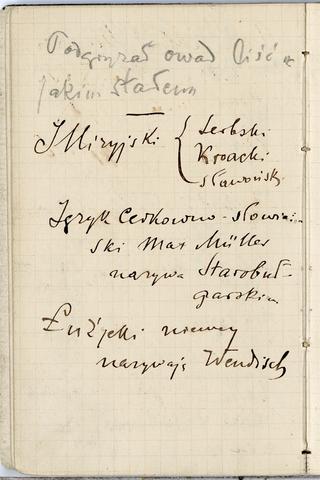 Podgryzał owad liść w
jakim stałem
Illiryjski { Serbski
Kroacki
sławoński
Język Cerkowno-słowiań-
ski Max Müller
nazywa Starobuł-
garskim
Łużycki niemcy
nazywają Wendisch